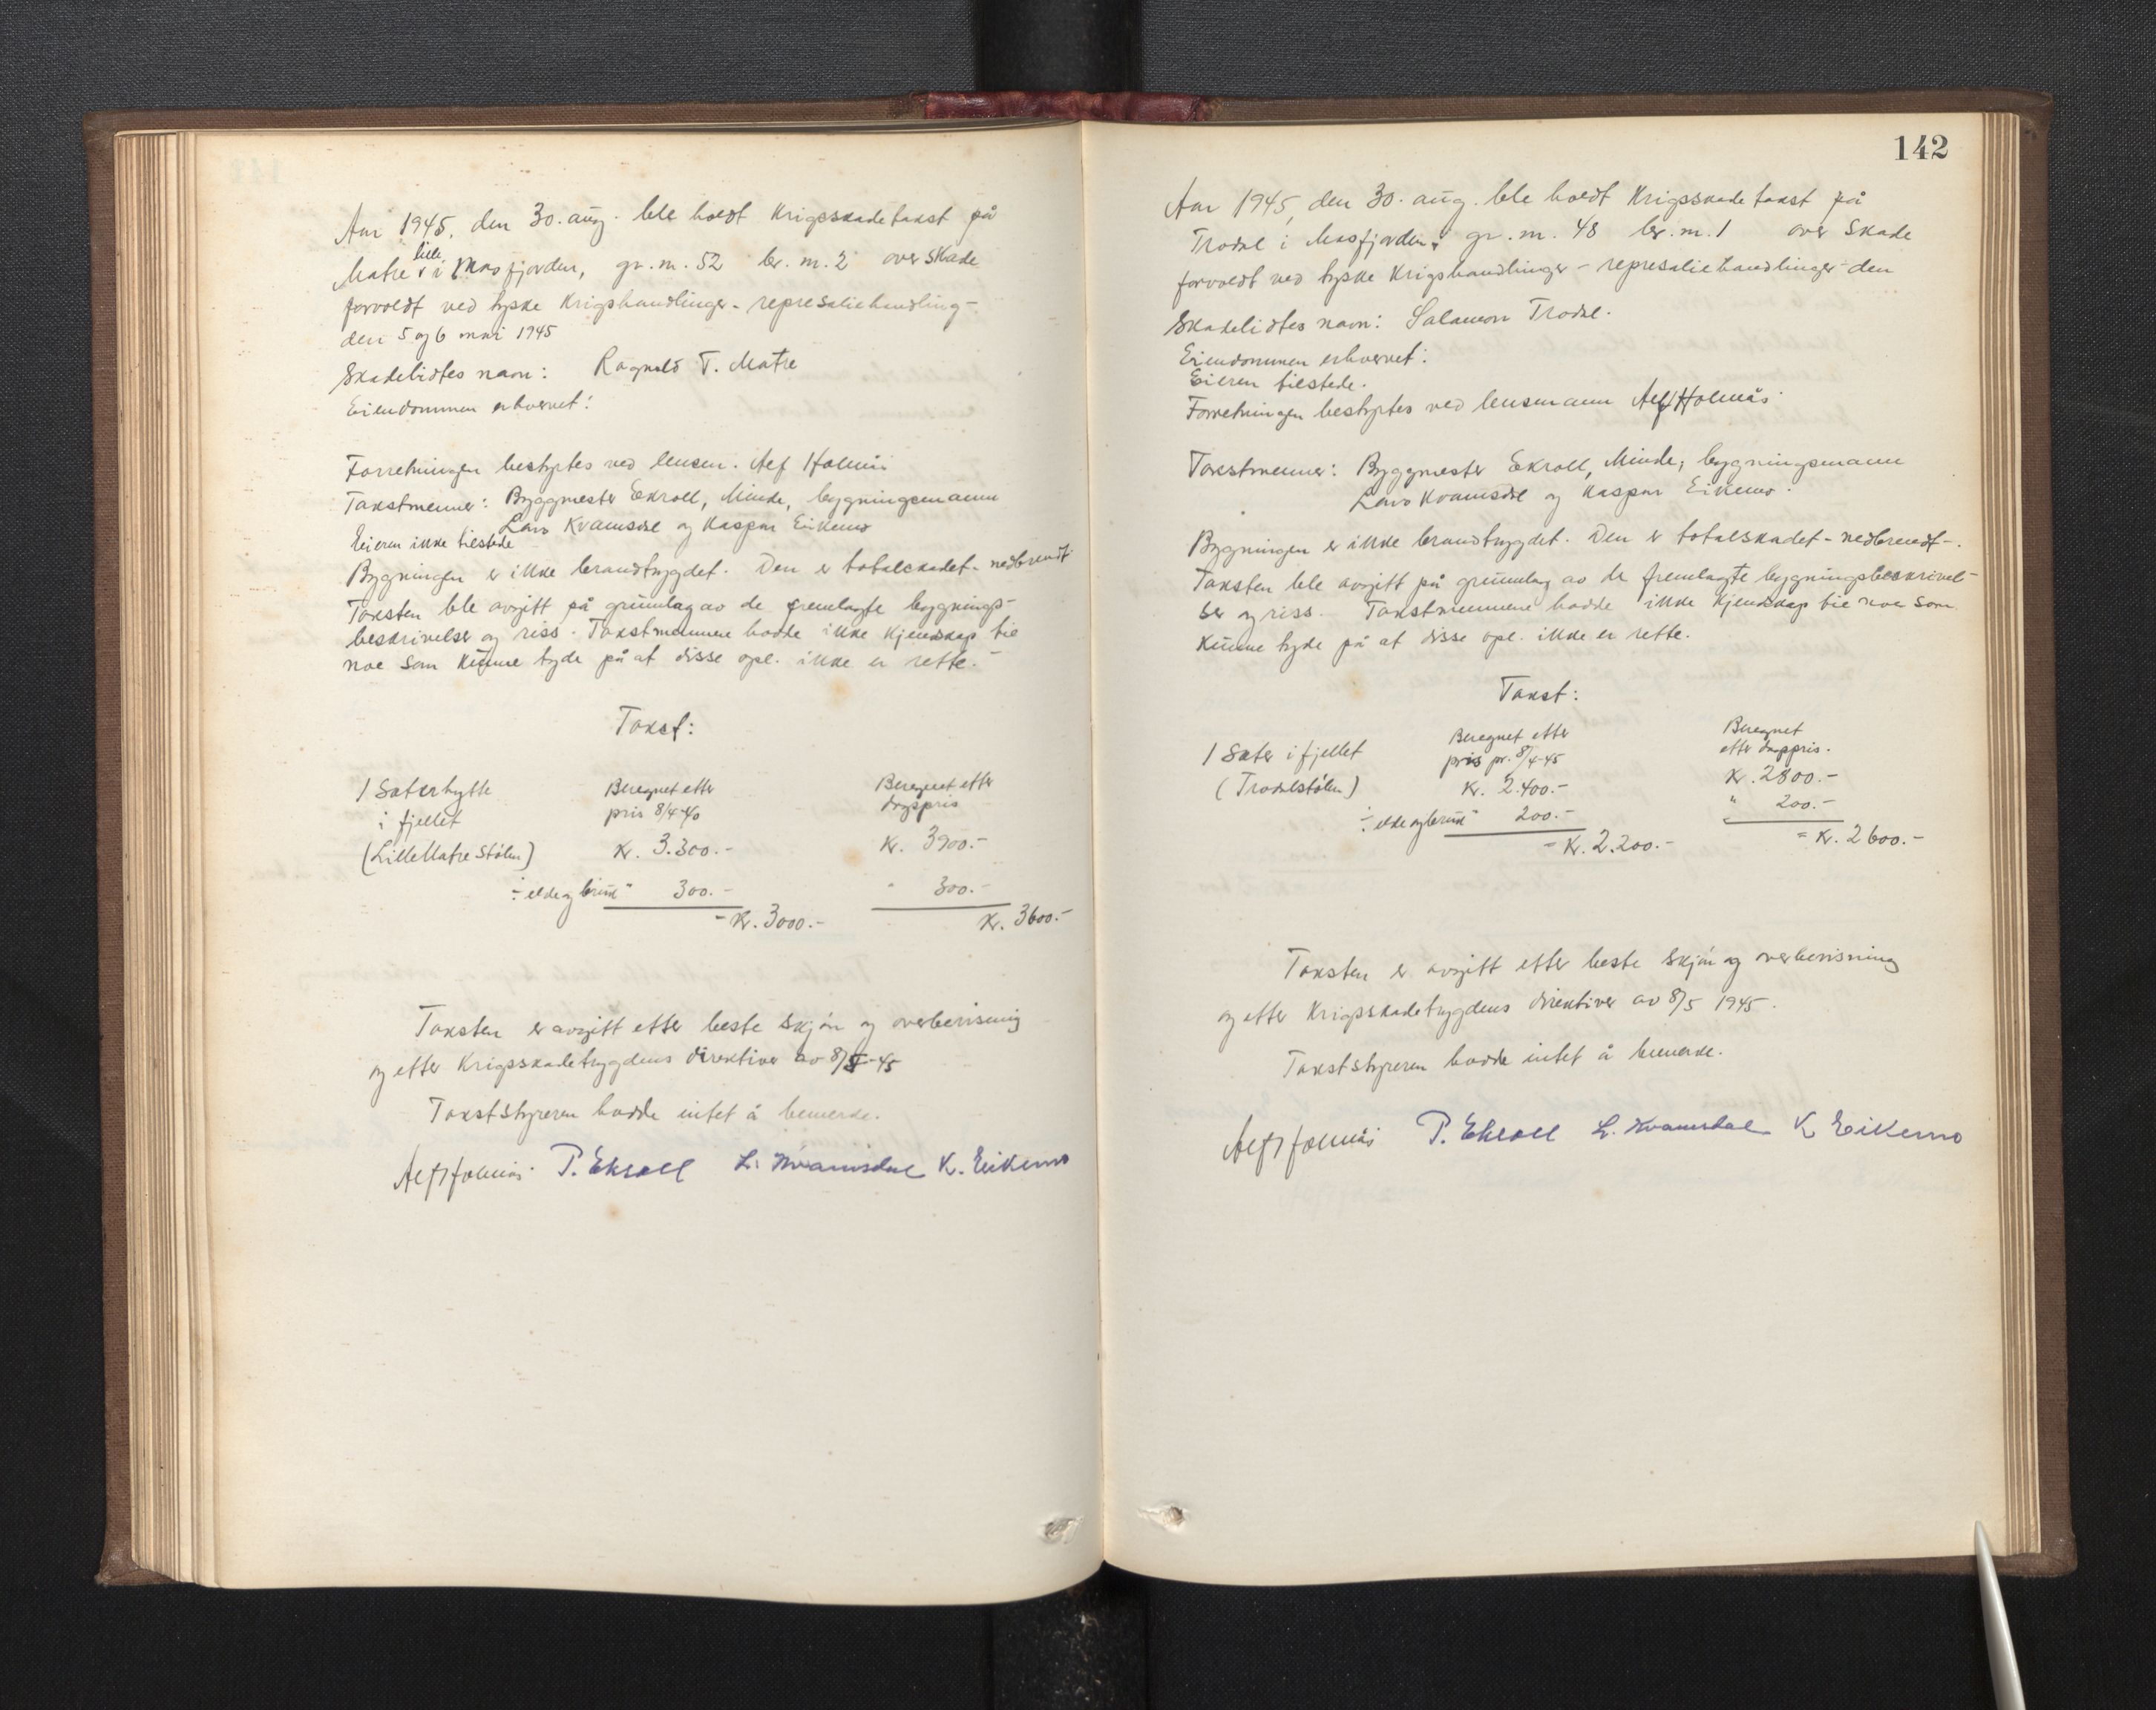 Aar 1945, den 30. aug. ble holdt Krigsskadetakst på
lille
Matre i Masfjorden, gr. nr. 52 br. nr. 2 over Skade
forvoldt ved tyske Krigshandlinger - represaliehandling -
den 5 og 6 mai 1945
Skadelidtes navn: Ragnald T. Matre
Eiendommen erhvervet:
Forretningen bestyrtes ved lensm. Alf Holmås
Takstmenner: Byggmester Ekroll, Minde, bygningsmann
Lars Kvamsdal og Kaspar Eikemo
Eieren ikke tilstede
Bygningen er ikke brandtrygdet. Den er totalskadet - nedbrendt
Taksten ble avgitt på grunnlag av de fremlagte bygnings-
beskrivelser og riss. Takstmennene hadde ikke kjendskap til
noe som kunne tyde på at disse opl. ikke er rette. -
Takst:
1 Saterhytte Beregnet etter Beregnet etter
i fjellet pris 8/4-40 dagspris
(Lille Matre Stølen) Kr. 3.300.- Kr. 3900.-
÷ elde og bruk " 300.- " 300.-
- Kr. 3000.- Kr. 3600.-
Taksten er avgitt etter beste Skjøn og overbevisning
og etter Krigsskadetrygdens direktiver av 8/5-45
Takststyreren hadde intet å bemerke.
Alf Holmås P. Ekroll L. Kvamsdal K. Eikemo
142
Aar 1945, den 30. aug. ble holdt Krigsskadetakst på
Trodal i Masfjorden, gr. nr. 48 br. nr. 1 over Skade
forvoldt ved tyske Krigshandlinger - represaliehandlinger - den
Skadelidtes navn: Salamon Trodal.
Eiendommen erhvervet:
Eieren tilstede.
Forretningen bestyrtes ved lensmann Alf Holmås
Takstmenner: Byggmester Ekroll, Minde, bygningsmann
Lars Kvamsdal og Kaspar Eikemo.
Bygningen er ikke brandtrygdet. Den er totalskadet - nedbrendt -.
Taksten ble avgitt på grunnlag av de fremlagte bygningsbeskrivel-
ser og riss. Takstmennene hadde ikke kjendskap til noe som
kunne tyde på at disse opl. ikke er rette.
Takst:
1 Sater i fjellet Beregnet etter Beregnet
(Trodalstølen) pris pr. 8/4-45 etter dagspris.
Kr. 2.400.- Kr. 2800.-
÷ elde og bruk " 200.- " 200.-
- Kr. 2.200.- = Kr. 2600.-
Taksten er avgitt etter beste Skjøn og overbevisning
og etter Krigsskadetrygdens direktiver av 8/5 1945.
Takststyreren hadde intet å bemerke.
Alf Holmås P. Ekroll L. Kvamsdal K Eikemo